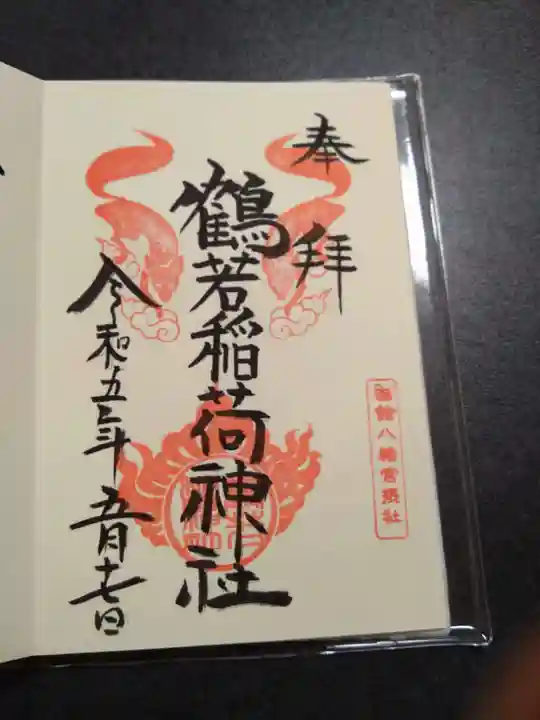 奉拝
函館八幡宮摂社
鶴若稲荷神社
令和五年五月十七日